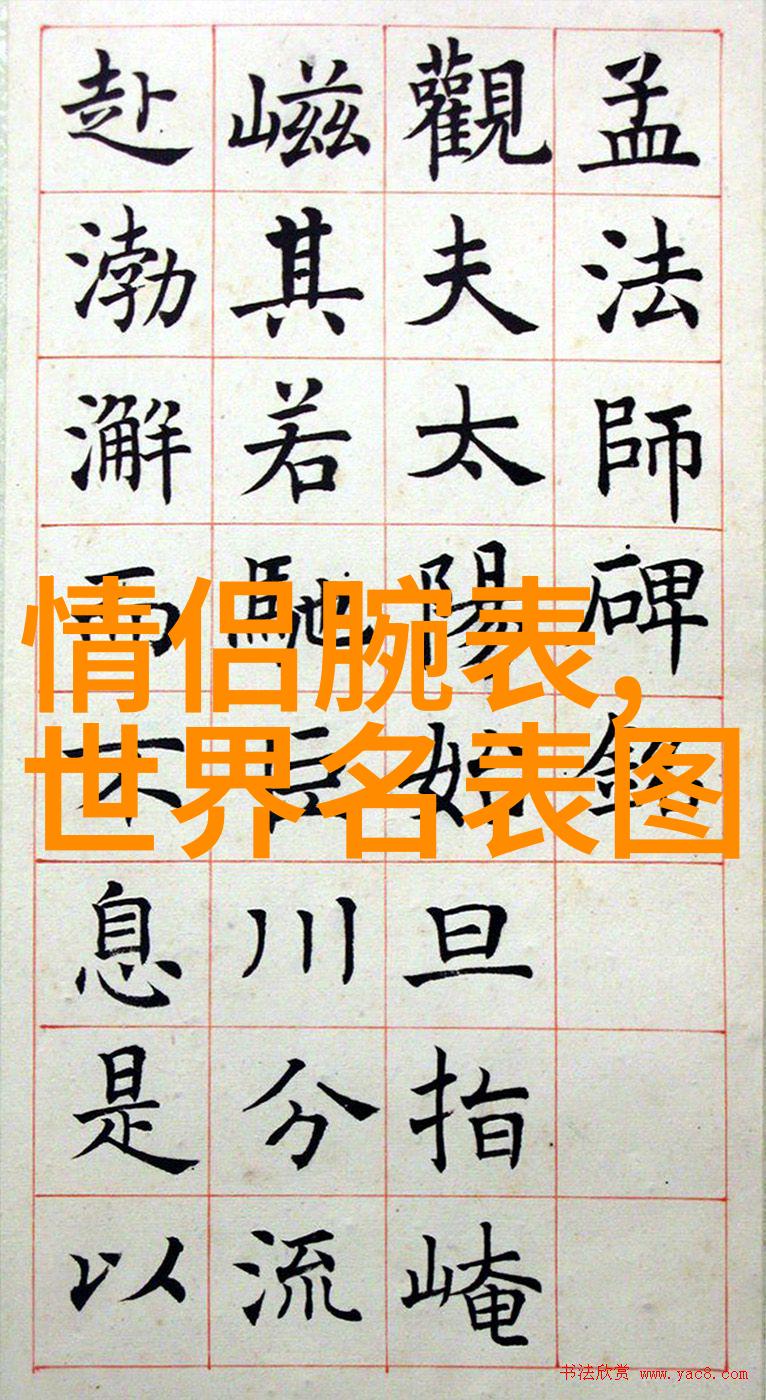 孟法師碑銘
觀夫太陽始旦指崦
嵫其若馳巨川分流
赴渤澥而不息是以
情侣腕表,
世界名表图
书法欣赏 www.yac8.com